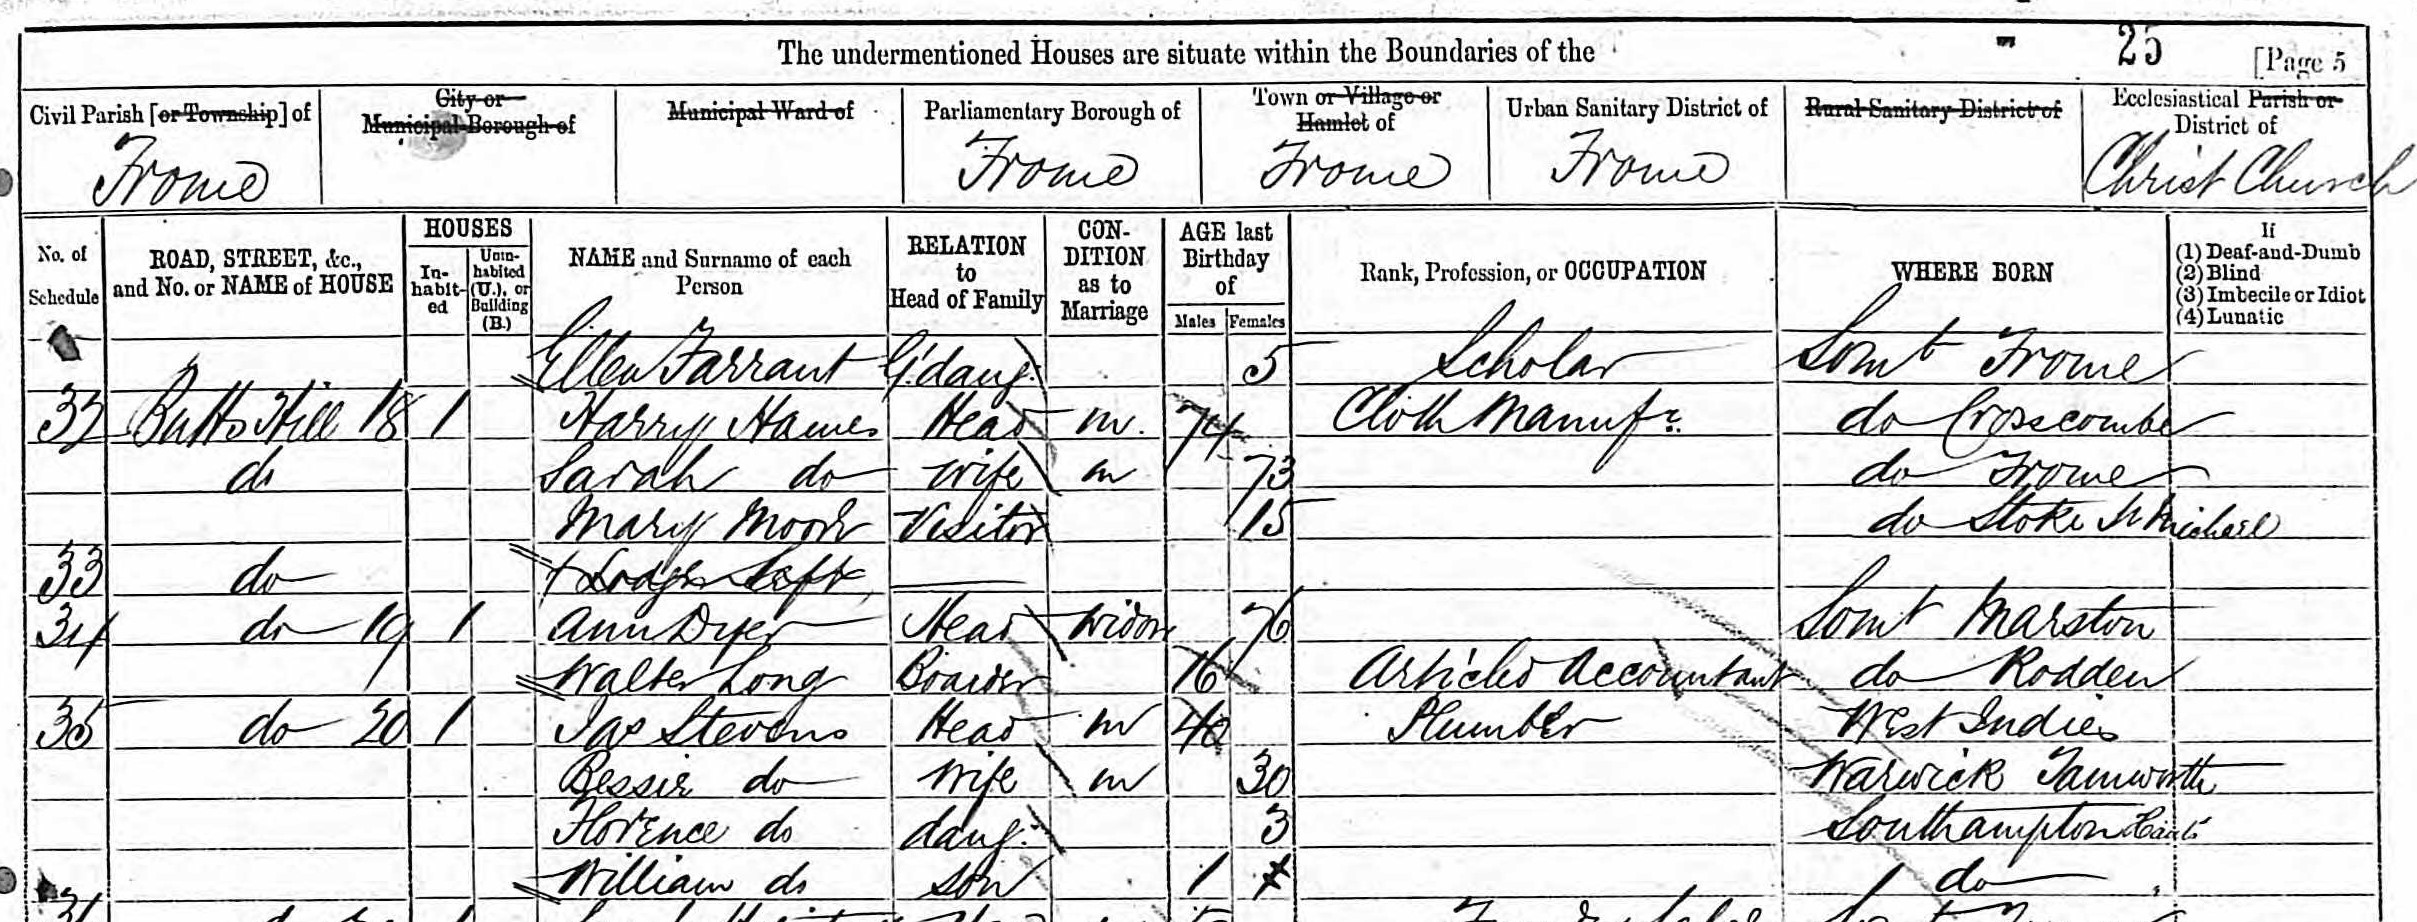 The undermentioned Houses are situate within the Boundaries of the 25 [Page 5
Civil Parish [or Township] of City or Municipal Borough of Municipal Ward of Parliamentary Borough of Town or Village or Hamlet of Urban Sanitary District of Rural Sanitary District of Ecclesiastical Parish or District of
Frome Frome Frome Frome Christ Church
No. of Schedule ROAD, STREET, &c., and No. or NAME of HOUSE HOUSES Inhabited Uninhabited (U.), or Building (B.) NAME and Surname of each Person RELATION to Head of Family CONDITION as to Marriage AGE last Birthday of Males Females Rank, Profession, or OCCUPATION WHERE BORN If (1) Deaf-and-Dumb (2) Blind (3) Imbecile or Idiot (4) Lunatic
Ellen Farrant G'daug. 5 Scholar Somt Frome
32 Butts Hill 18 1 Harry Hames Head m. 74 Cloth Manufr. do Croscombe
do Sarah do wife m 73 do Frome
Mary Moon Visitor 15 do Stoke St Michael
33 do Lodger Left
34 do 19 1 Ann Dyer Head Widow 76 Somt Marston
Walter Long Boarder 16 Articled Accountant do Rodden
35 do 20 1 Jas Stevens Head m 40 Plumber West Indies
Bessie do Wife m 30 Warwick Tamworth
Florence do daug. 3 Southampton Hants
William do son 1 do